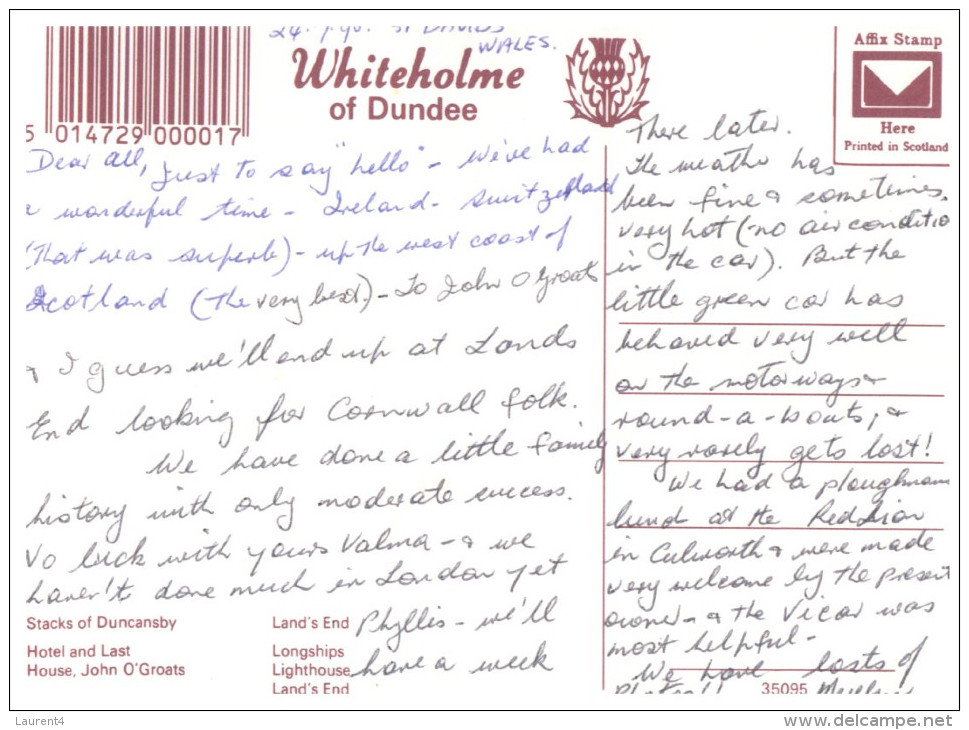 24. 7. 90. ST DAVIDS
WALES.
Whiteholme
of Dundee
5 014729 000017
Affix Stamp
Here
Printed in Scotland
Dear All, Just to say "hello" - we've had
a wonderful time - Ireland - Switzerland
(That was superb) - up the west coast of
Scotland (the very best) - To John O Groats
& I guess we'll end up at Lands
End looking for Cornwall folk.
We have done a little family
history with only moderate success.
No luck with yours Valma - & we
haven't done much in London yet
Phyllis - we'll
have a week
There later.
The weather has
been fine & sometimes
very hot (no air conditio
in the car). But the
little green car has
behaved very well
on the motorways &
round-a-bouts, &
very rarely gets lost!
We had a ploughmans
lunch at the Red Lion
in Culworth & were made
very welcome by the present
owner - & the Vicar was
most helpful -
We have losts of
Stacks of Duncansby
Hotel and Last
House, John O'Groats
Land's End
Longships
Lighthouse
Land's End
35095
Laurent4
www.delcampe.net